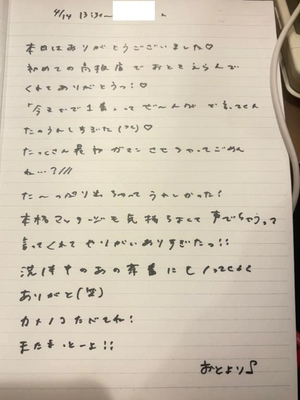 4/14 13:30~
本日はありがとうございました♡
初めての高級店でおとをえらんで
くれてありがとうっ!♡
「今までで1番」って で言ってくれ
たのうれしすぎた(´`)♡
たっくさん最初ガマンさせちゃってごめん
ね…?///
た〜っぷり かってうれしかった!
本格マッサージも気持ちよくて声でちゃうって
言ってくれてやりがいありすぎたっ!!
洗体中のあの にも ってくれて
ありがと(笑)
カメノコたべてね!
またまっとーよ!!
おとより♪